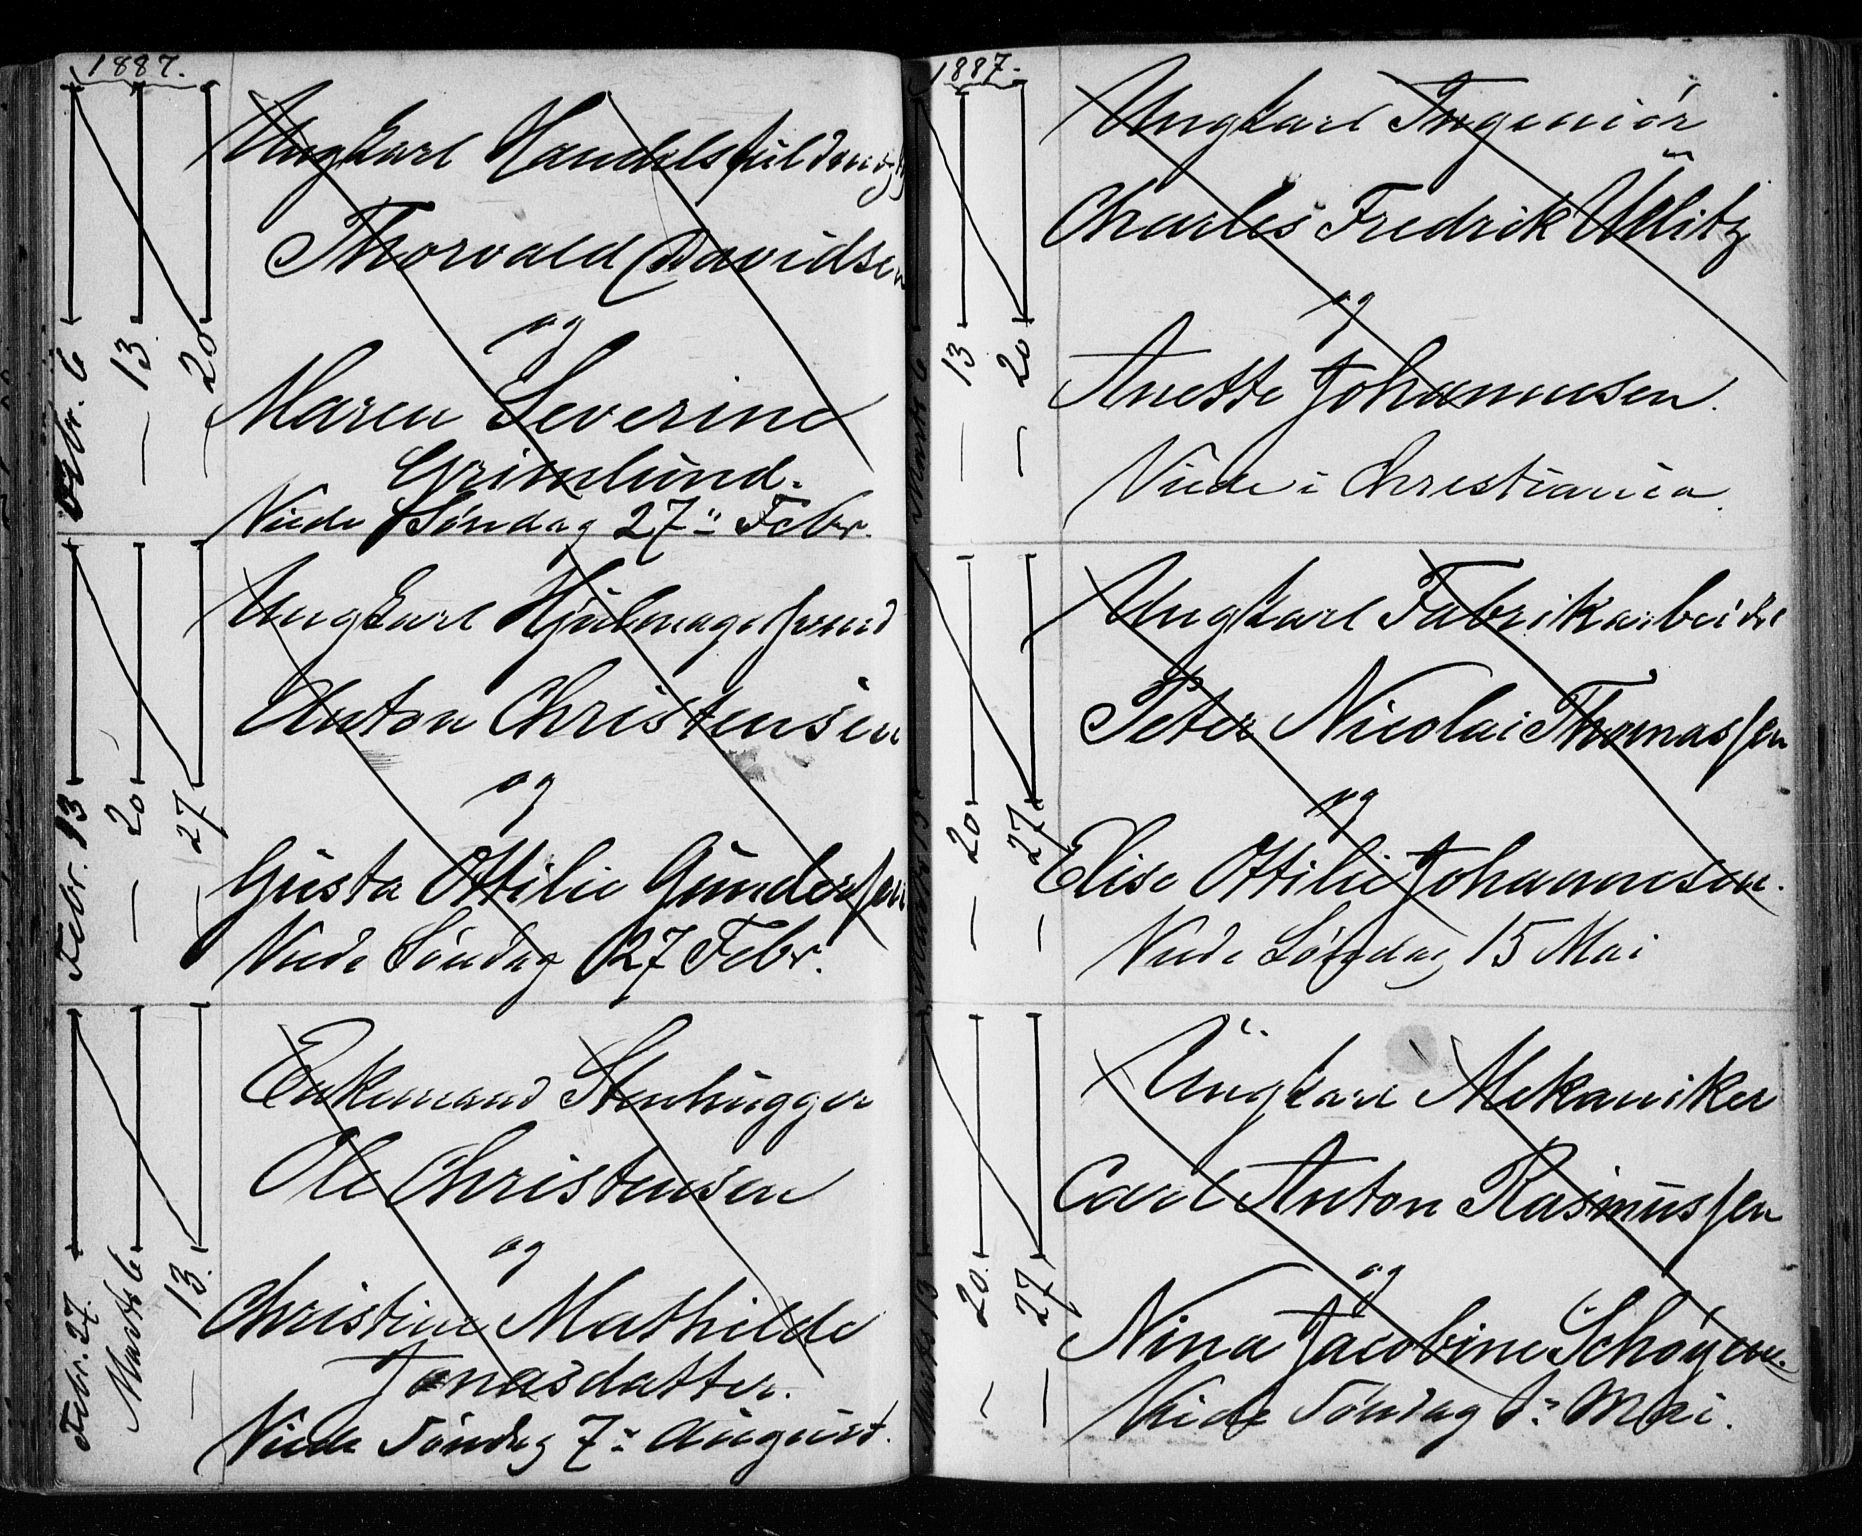 1887.
Febr. 6
— 13
— 20
Ungkarl Handelsfuldmægtg
Thorvald Davidsen
og
Maren Severine
Grimlund.
Viede Søndag 27 Febr.
Febr. 13
— 20
— 27
Ungkarl Hjulmagersvend
Anton Christensen
og
Gusta Ottilie Gundersen
Viede Søndag 27 Febr.
Febr. 27.
Marts 6
— 13.
Enkemand Stenhugger
Ole Christensen
og
Christine Mathilde
Jonasdatter.
Viede Søndag 7 August.
1887.
Marts 6
— 13
— 20
Ungkarl Ingeniør
Charles Fredrik Uelitz
og
Anette Johannesen.
Viede i Christiania.
— 20
— 27
Ungkarl Fabrikarbeider
Peter Nicolai Thomassen
og
Elise Ottilie Johannesen.
Viede Søndag 15 Mai
Marts 13
— 20.
— 27
Ungkarl Mekaniker
Carl Anton Rasmussen
og
Nina Jacobine Schøyen.
Viede Søndag 1 Mai.